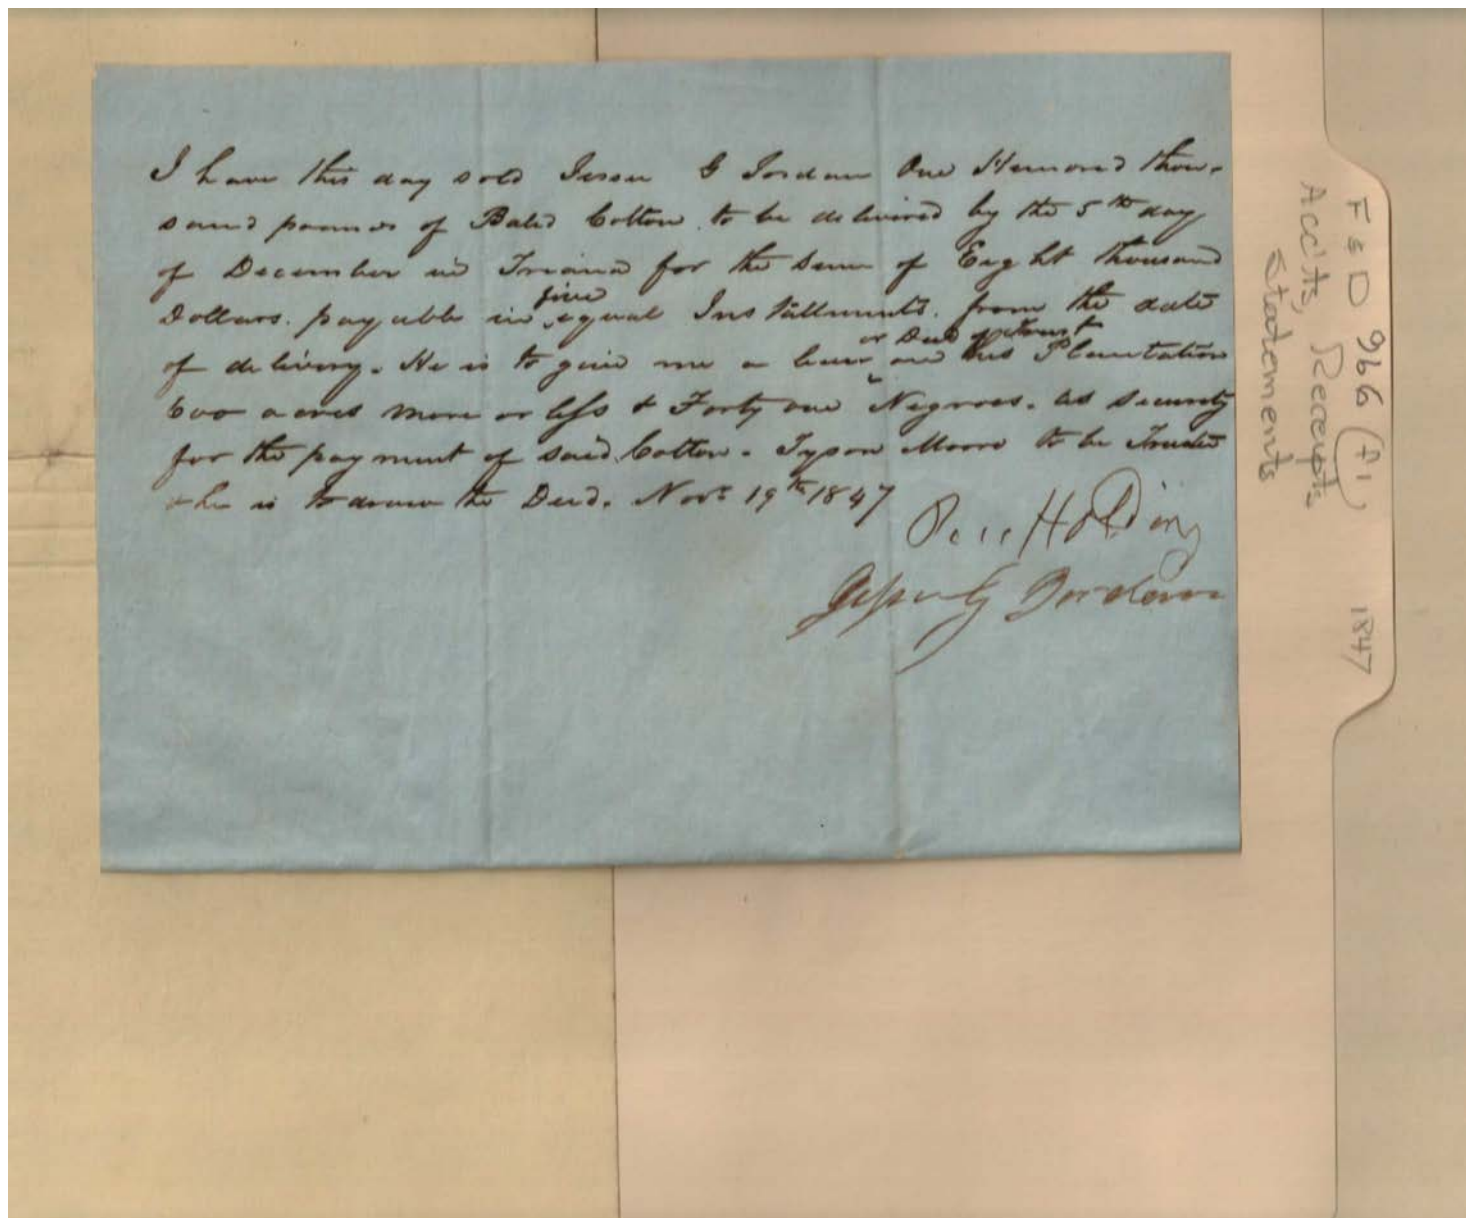 I have this day sold Jesse G Jordan One Hundred thou-
sand pounds of Baled Cotton to be delivered by the 5th day
of December in Triana for the sum of Eight thousand
Dollars. payable in five equal Installments. from the date
of delivery. He is to give me a lien or Deed of Trust on his Plantation
600 acres more or less & Forty one Negroes. as security
for the payment of said Cotton. Tyson Moore to be Trustee
& he is to draw the Deed. Novr 19th 1847
Holding
Jesse G Jordan
F & D 966 (f1) 1847
Acc'ts, Receipts,
Statements